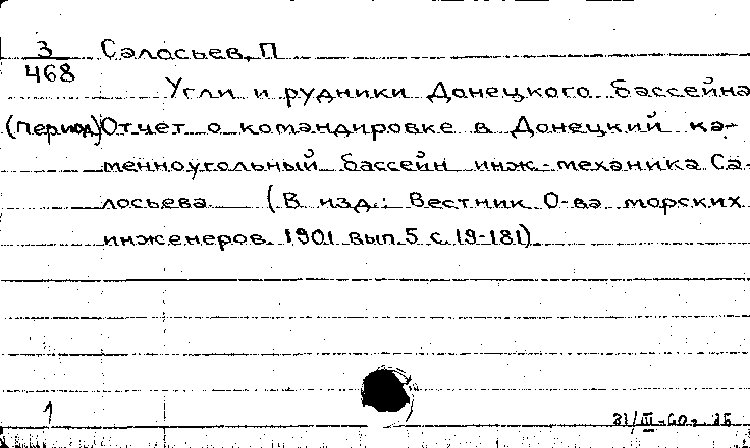 3 Салосьев, П
468
Угли и рудники Донецкого бассейна
(период) Отчет о командировке в Донецкий ка-
менноугольный бассейн инж.-механика Са-
лосьева (В изд.: Вестник О-ва морских
инженеров. 1901 вып. 5 с. 19-181)
1